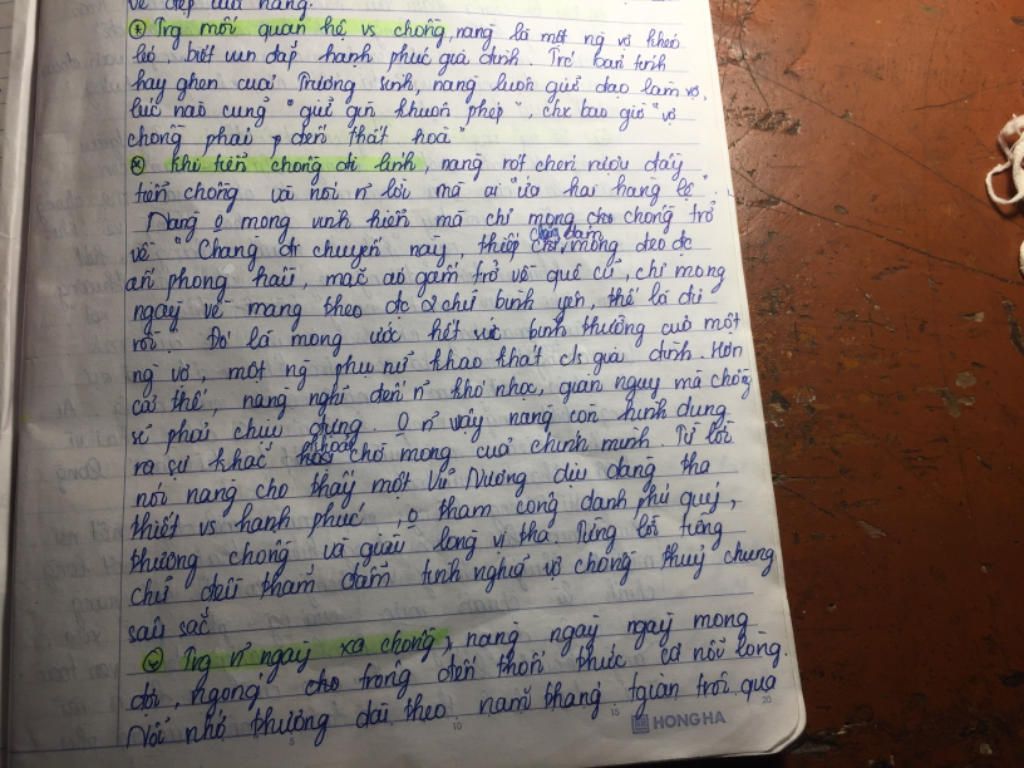 vẻ đẹp của nàng.
Trg mối quan hệ vs chồng, nàng là một ng vợ khéo
léo, biết vun đắp hạnh phúc gia đình. Trc bản tính
hay ghen của Trương Sinh, nàng luôn giữ đạo làm vợ,
lúc nào cũng "giữ gìn khuôn phép", chx bao giờ "vợ
chồng phải p đến thất hoà"
Khi tiễn chồng đi lính, nàng rót chén rượu đầy
tiễn chồng và nói n~ lời mà ai "ứa hai hàng lệ".
Nàng o mong vinh hiển mà chỉ mong cho chồng trở
về "Chàng đi chuyến này, thiếp chẳng dám mong đeo đc
ấn phong hầu, mặc áo gấm trở về quê cũ, chỉ mong
ngày về mang theo đc 2 chữ bình yên, thế là đủ
rồi. Đó là mong ước hết sức bình thường của một
ng vợ, một ng phụ nữ khao khát cs gia đình. Hơn
cả thế, nàng nghĩ đến n~ khó nhọc, gian nguy mà chồng
sẽ phải chịu đựng. O n~ vậy nàng còn hình dung
ra sự khắc khoải chờ mong của chính mình. Từ lời
nói nàng cho thấy một Vũ Nương dịu dàng tha
thiết vs hạnh phúc, o tham công danh phú quý,
thương chồng và giàu lòng vị tha. Từng lời từng
chữ đều thấm đẫm tình nghĩa vợ chồng thuỷ chung
sâu sắc
Trg n~ ngày xa chồng, nàng ngày ngày mong
đợi, ngóng trông đến thổn thức cả nỗi lòng.
Nỗi nhớ thương dài theo năm tháng tgian trôi qua
HONG HA
5 10 15 20